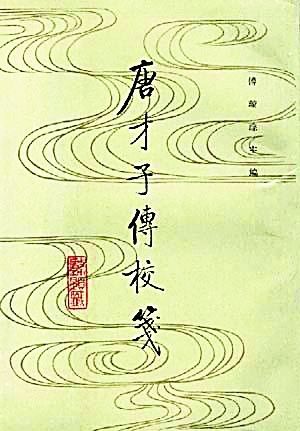 傅璇琮主編
唐才子傳校箋